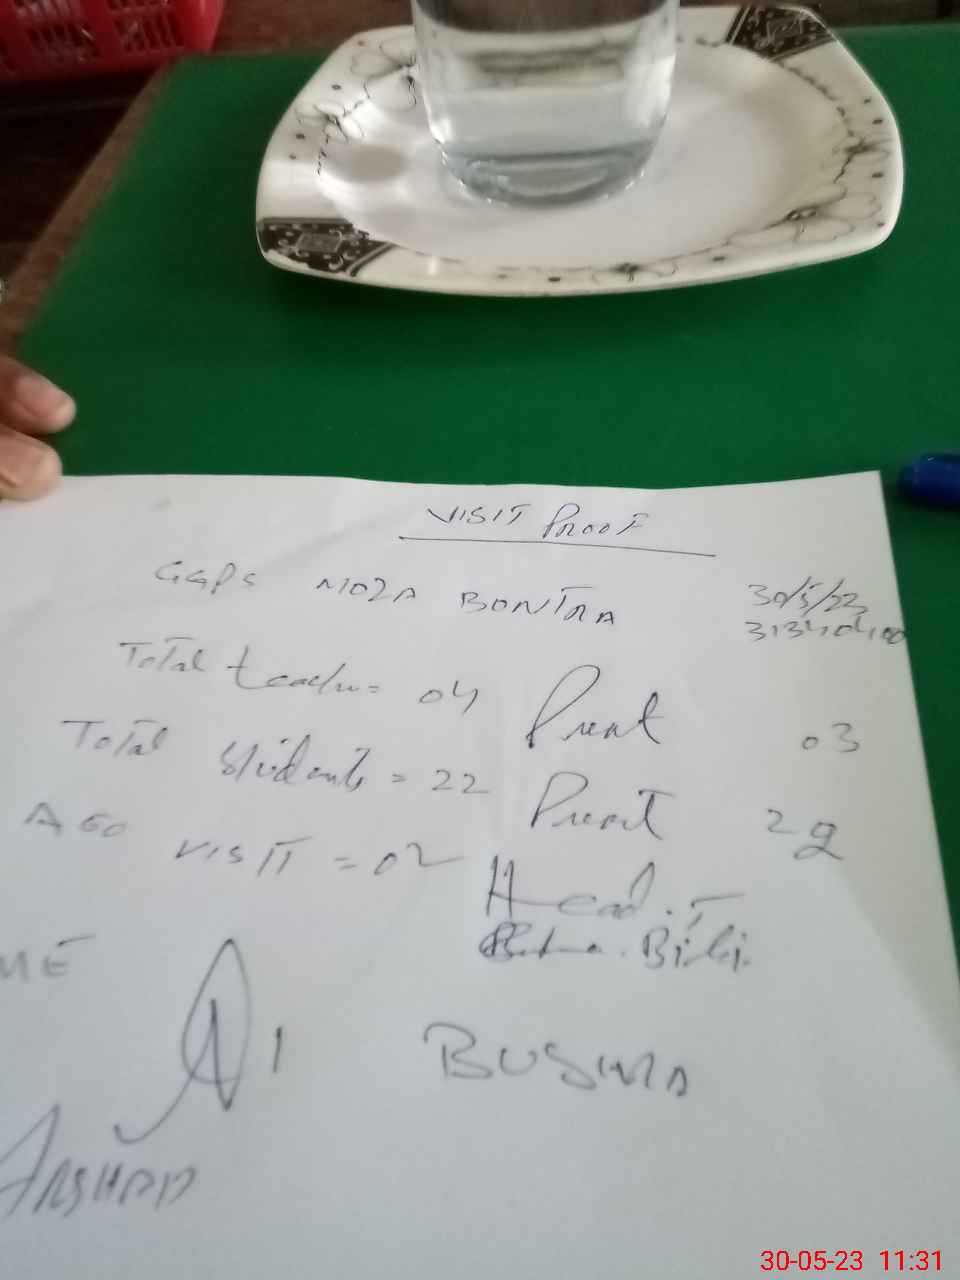 VISIT PROOF
GGPS MOZA BONTRA 30/5/23
Total teacher = 04 Present 03
Total Students = 22 Present
AEO VISIT = 02
Head. T
Bibi.
ME
BUSHRA
ARSHAD
30-05-23 11:31